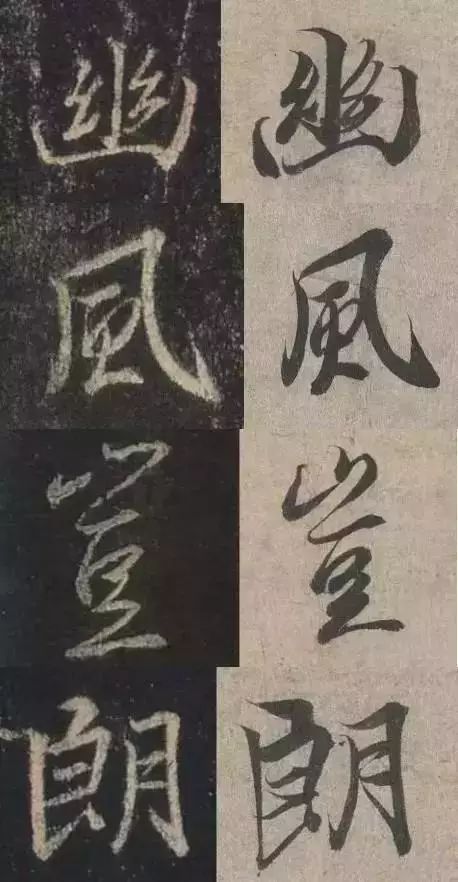 幽 幽
風 風
豈 豈
朗 朗